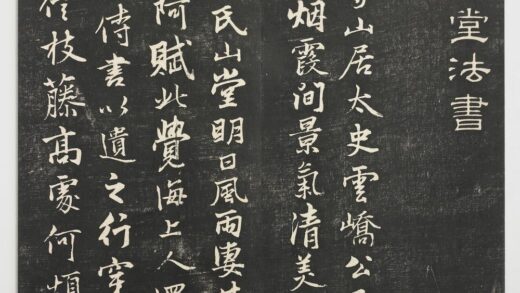 堂法書
山居太史雲嶠公
烟霞間景氣清美
氏山堂明日風雨凄
阿賦此覺海上人
侍書以遺之行穿
枝藤高處何